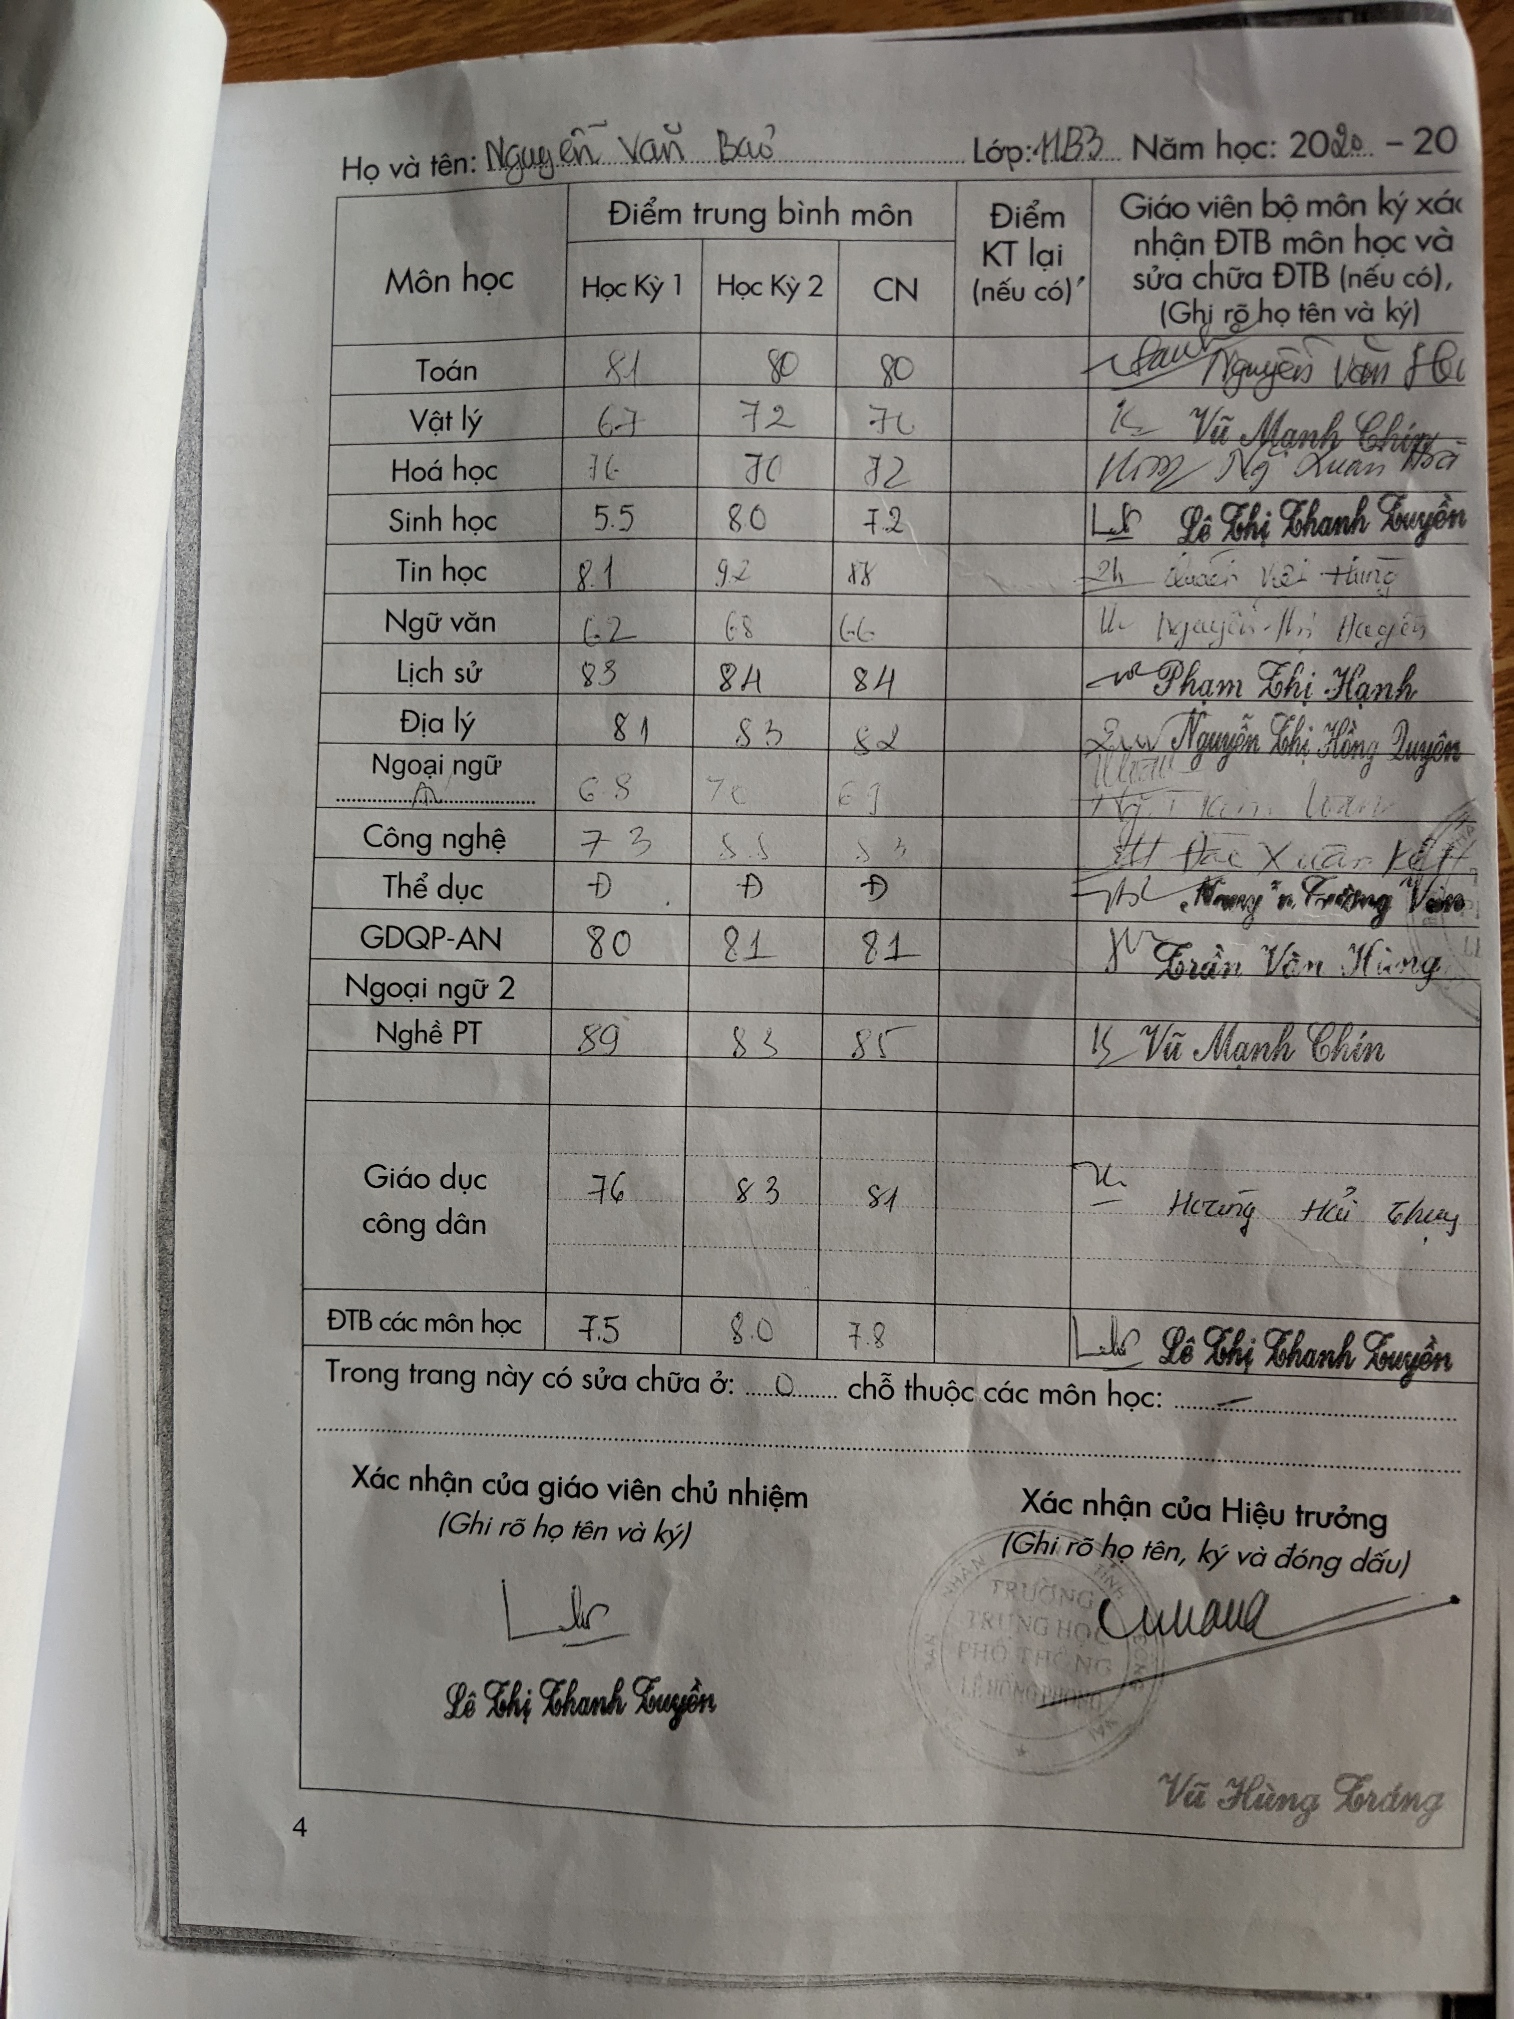 Họ và tên: Nguyễn Văn Bảo Lớp: 11B3 Năm học: 2020 - 20
Môn học Điểm trung bình môn Điểm KT lại (nếu có) Giáo viên bộ môn ký xác
nhận ĐTB môn học và
sửa chữa ĐTB (nếu có),
(Ghi rõ họ tên và ký)
Học Kỳ 1 Học Kỳ 2 CN
Toán 81 80 80 Nguyễn Văn
Vật lý 67 72 70 Vũ Mạnh Chín
Hoá học 76 70 72 Ng Xuân
Sinh học 5.5 80 7.2 Lê Thị Thanh Tuyền
Tin học 8.1 9.2 88 Hùng
Ngữ văn 62 68 66 Nguyễn Thị
Lịch sử 83 84 84 Phạm Thị Hạnh
Địa lý 81 83 82 Nguyễn Thị Hồng Quyên
Ngoại ngữ
68 70 69
Công nghệ 73
Thể dục Đ Đ Đ Trường
GDQP-AN 80 81 81 Trần Văn Hùng
Ngoại ngữ 2
Nghề PT 89 83 85 Vũ Mạnh Chín
Giáo dục
công dân 76 83 81 Hoàng Hải
ĐTB các môn học 7.5 8.0 7.8 Lê Thị Thanh Tuyền
Trong trang này có sửa chữa ở: 0 chỗ thuộc các môn học: -
Xác nhận của giáo viên chủ nhiệm
(Ghi rõ họ tên và ký)
Xác nhận của Hiệu trưởng
(Ghi rõ họ tên, ký và đóng dấu)
TRƯỜNG
TRUNG HỌC
PHỔ THÔNG
LÊ HỒNG PHONG
Lê Thị Thanh Tuyền
Vũ Hùng Tráng
4